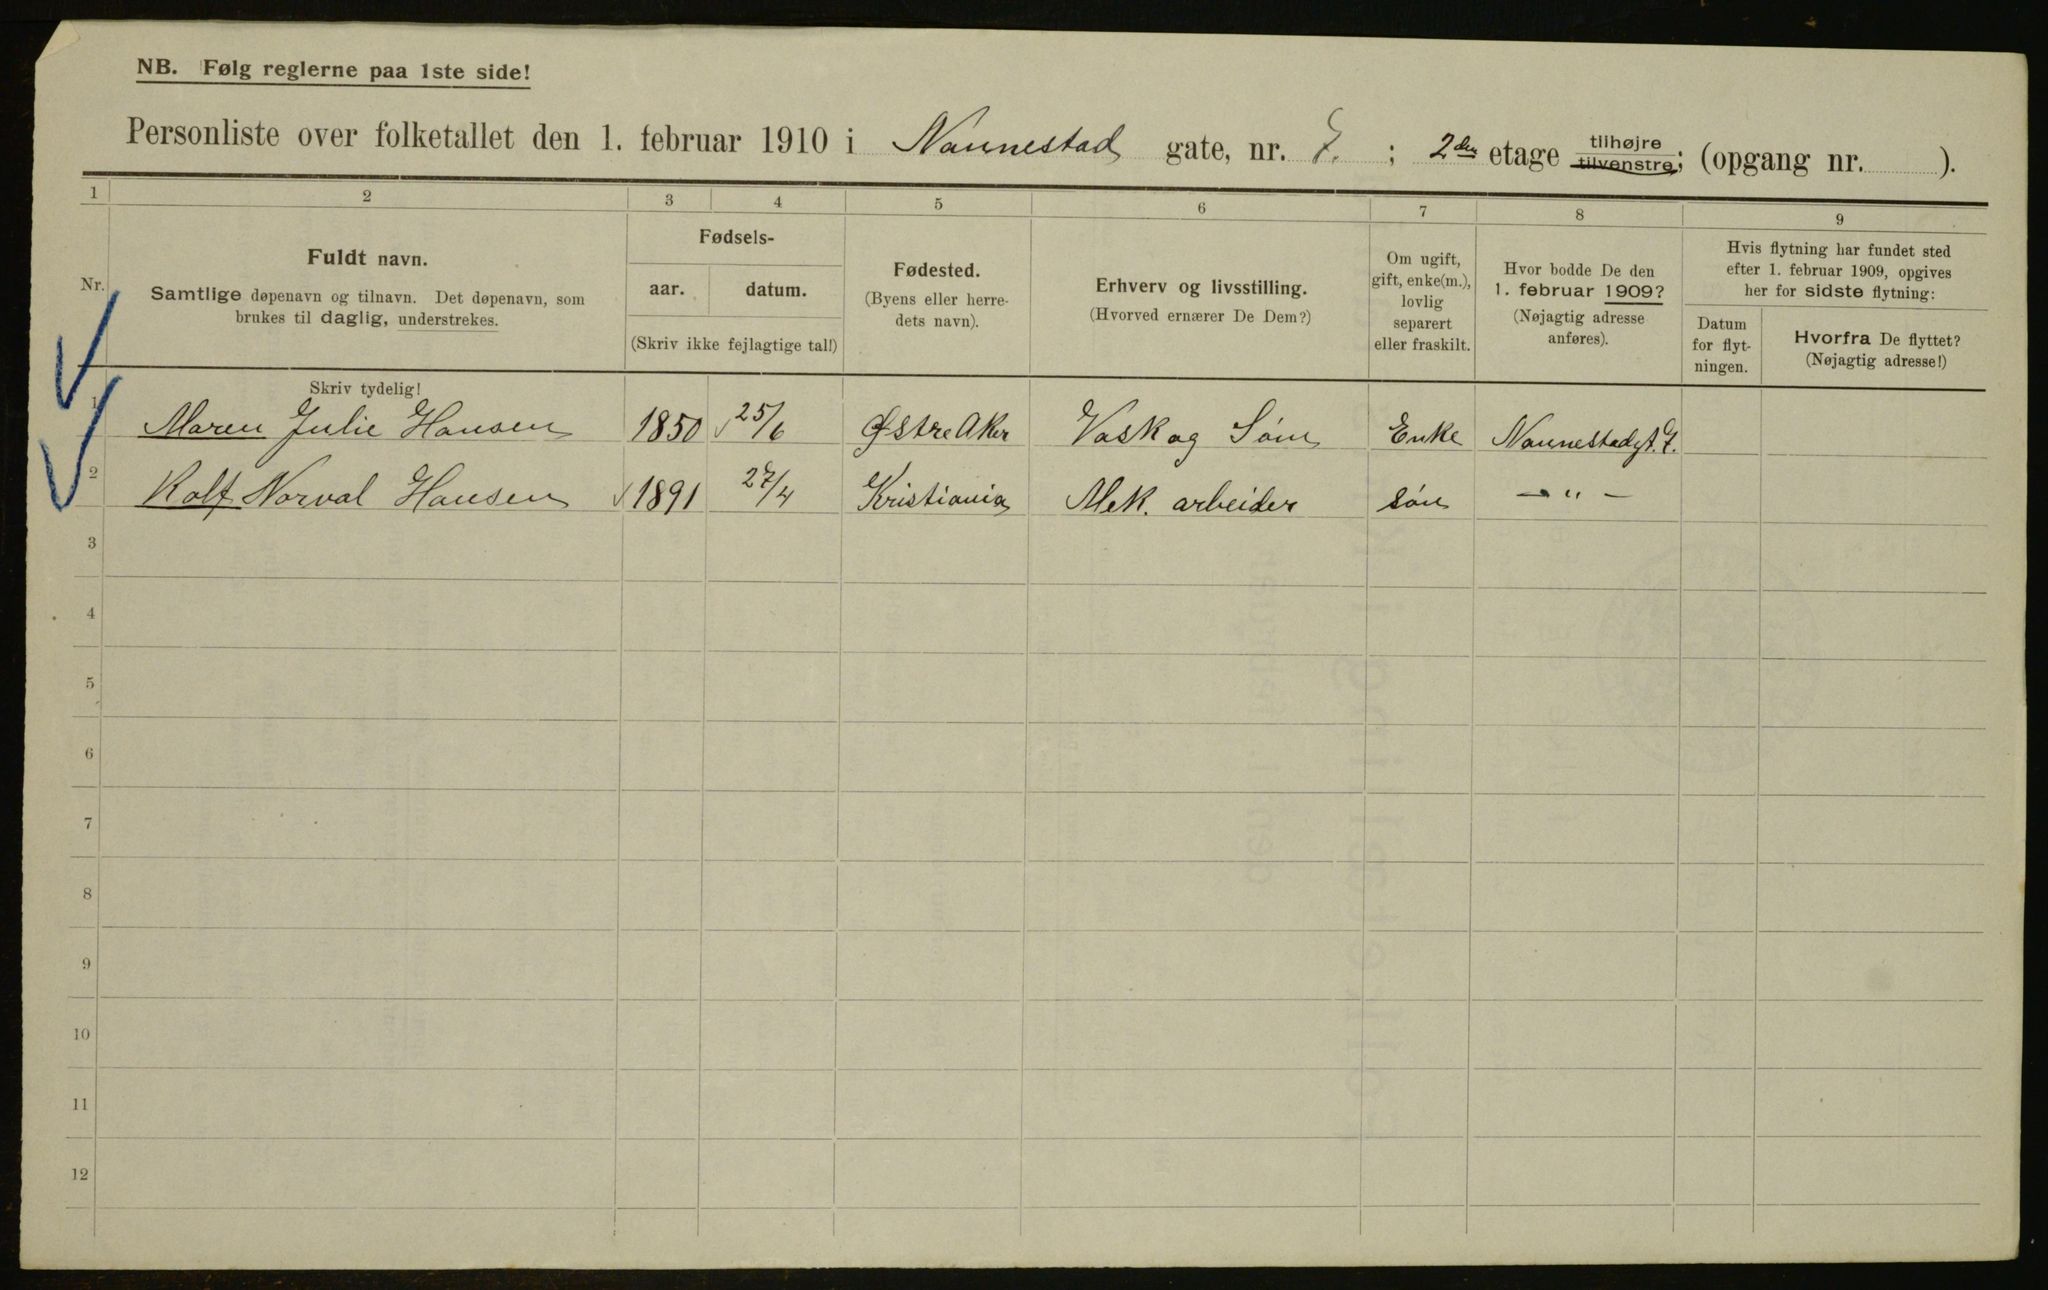 NB. Følg reglerne paa 1ste side!
Personliste over folketallet den 1. februar 1910 i Nannestad gate, nr. 7. ; 2den etage tilhøjre tilvenstre; (opgang nr. ).
1 2 3 4 5 6 7 8 9
Nr.
Fuldt navn.
Samtlige døpenavn og tilnavn. Det døpenavn, som
brukes til daglig, understrekes.
Fødsels-
aar. datum.
(Skriv ikke fejlagtige tal!)
Fødested.
(Byens eller herre-
dets navn).
Erhverv og livsstilling.
(Hvorved ernærer De Dem?)
Om ugift,
gift, enke(m.),
lovlig
separert
eller fraskilt.
Hvor bodde De den
1. februar 1909?
(Nøjagtig adresse
anføres).
Hvis flytning har fundet sted
efter 1. februar 1909, opgives
her for sidste flytning:
Datum
for flyt-
ningen.
Hvorfra De flyttet?
(Nøjagtig adresse!)
Skriv tydelig!
1 Maren Julie Hansen 1850 25/6 Østre Aker Vask og Søm Enke Nannestadgt. 7.
2 Rolf Norval Hansen 1891 27/4 Kristiania Mek. arbeider søn — " —
3
4
5
6
7
8
9
10
11
12